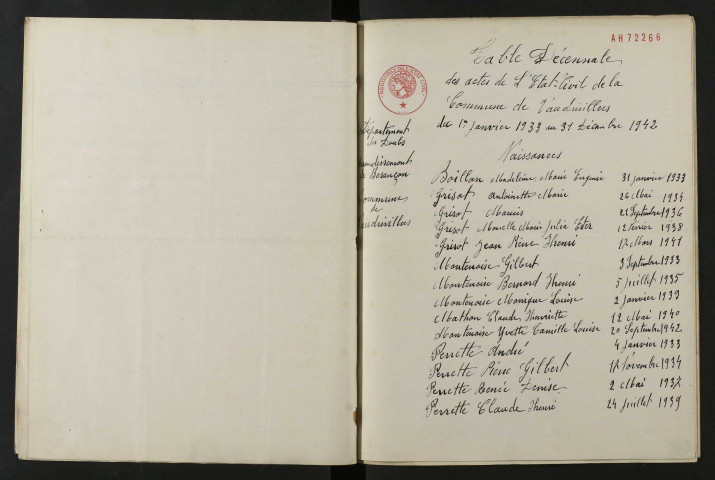 AH 72266
Table Décennale
des actes de L'Etat-Civil de la
Commune de Vaudrivillers
du 1er janvier 1933 au 31 Décembre 1942
Département
du Doubs
de Besançon
de
Naissances
Boillon Madeleine Marie Eugenie 31 janvier 1933
Grisot Antoinette Marie 26 Mai 1934
Grisot Marcis 21 Septembre 1936
Grisot Marcelle Marie Julia Ester 12 février 1938
Grisot Jean Pierre Henri 17 Mars 1941
Montenoise Gilbert 3 Septembre 1933
Montenoise Bernard Henri 5 juillet 1935
Montenoise Monique Louise 2 janvier 1939
Mathon Claude Henriette 12 Mai 1940
Montenoise Yvette Camille Louise 20 Septembre 1942
Perrette André 4 janvier 1933
Perrette Pierre Gilbert Novembre 1934
Perrette Renée Denise 2 Mai 1937
Perrette Claude Henri 24 juillet 1939